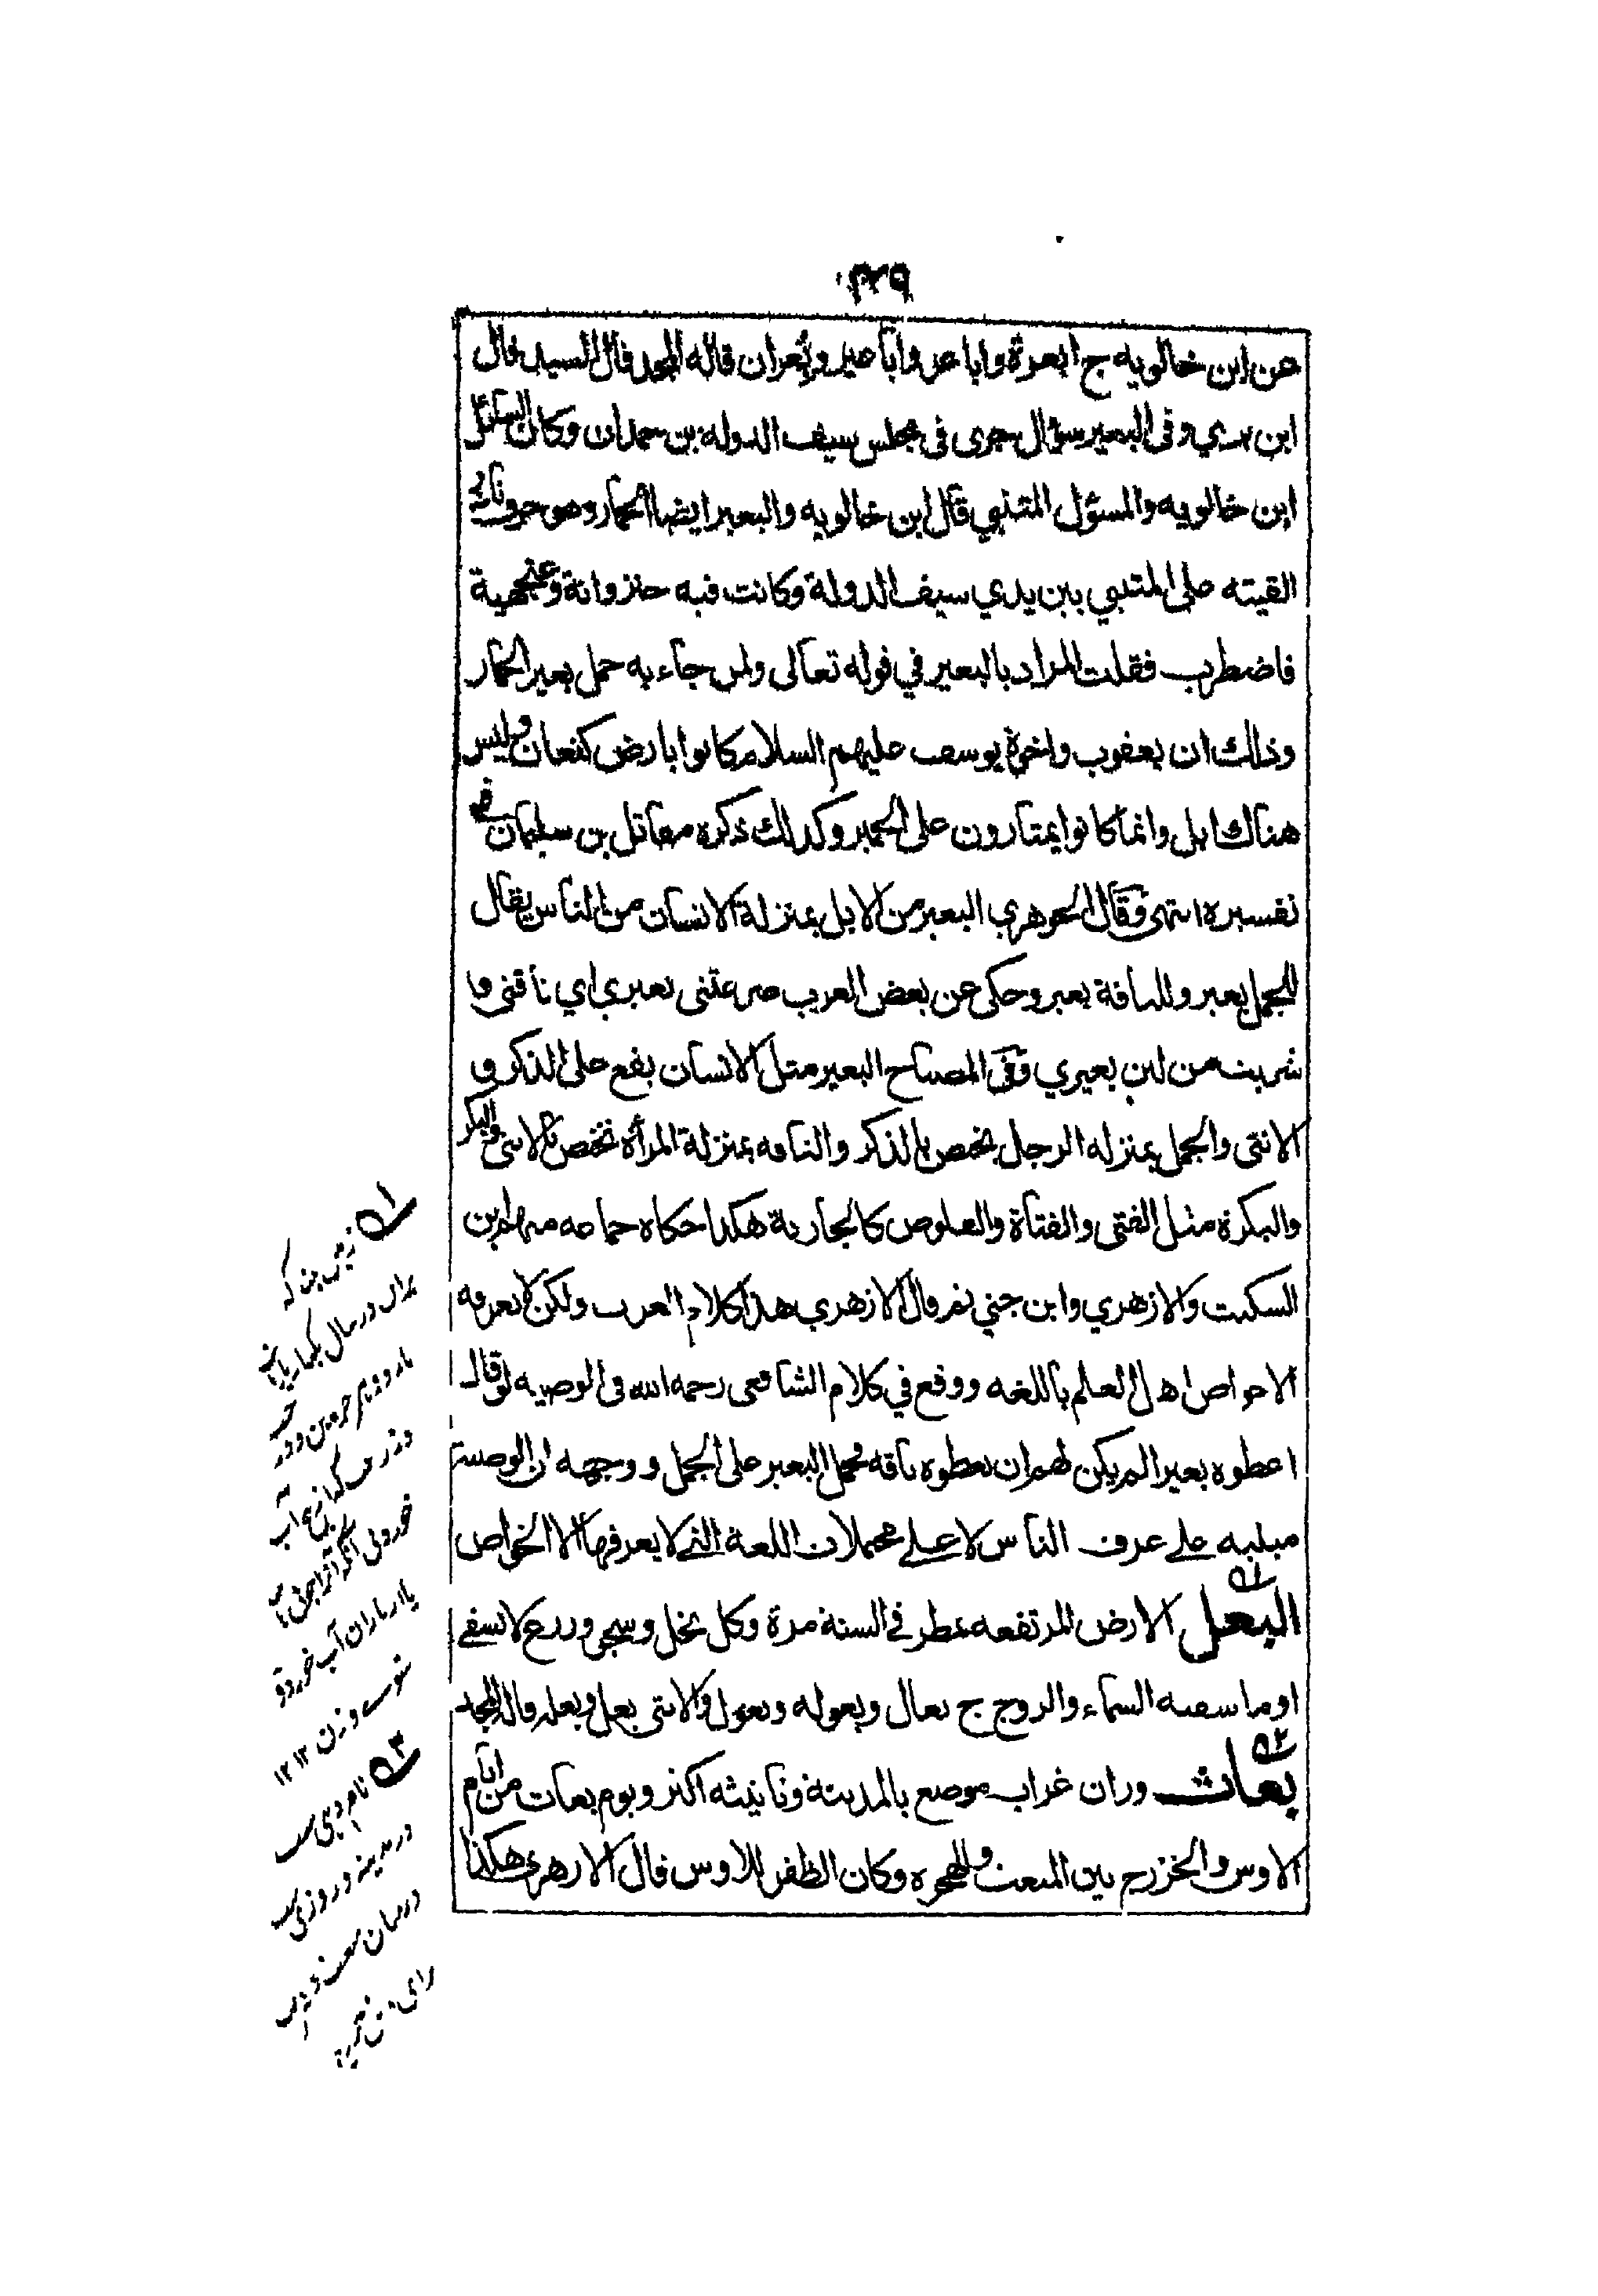 ٣٢٩
عن ابن خالويه ج ابعرة واباعر واباعير وبعران قاله المجد قال السيد قال
ابن بري وفى البعير سؤال جرى فى مجلس سيف الدوله بن حمدان وكان السائل
ابن خالويه والمسئول المتنبي قال ابن خالويه والبعير ايضا الحمار وهو حرف نادر
القيته على المتنبي بين يدي سيف الدولة وكانت فيه خنزوانة وعنجهية
فاضطرب فقلت المراد بالبعير في قوله تعالى ولمن جاء به حمل بعير الحمار
وذلك ان يعقوب واخوة يوسف عليهم السلام كانوا بارض كنعان وليس
هناك ابل وانما كانوا يمتارون على الحمير وكذلك ذكره مقاتل بن سليمان في
تفسيره انتهى وقال الجوهري البعير من الابل بمنزلة الانسان من الناس يقال
للجمل بعير وللناقة بعير وحكى عن بعض العرب صرعتنى بعيري اي ناقتى وما
شربت من لبن بعيري وفى المصباح البعير مثل الانسان يقع على الذكر و
الانثى والجمل بمنزله الرجل يختص بالذكر والناقه بمنزلة المرأة تختص بالانثى والبكر
والبكرة مثل الفتى والفتاة والقلوص كالجارية هكذا حكاه جماعه منهم ابن
السكيت والازهري وابن جني ثم قال الازهري هذا كلام العرب ولكن لا يعرفه
الا خواص اهل العلم باللغه ووقع في كلام الشافعى رحمه الله فى الوصيه لو قال
اعطوه بعيرا لم يكن لهم ان يعطوه ناقه فحمل البعير على الجمل ووجهه ان الوصية
مبنيه على عرف الناس لا على محتملات اللغة التى لا يعرفها الا الخواص
البعل الارض المرتفعه تمطر في السنة مرة وكل نخل وشجر وزرع لا يسقى
او ما سقته السماء والزوج ج بعال وبعوله وبعول والانثى بعل وبعله قاله المجد
بعاث وزان غراب موضع بالمدينة وتانيثه اكثر ويوم بعاث من ايام
الاوس والخزرج بين المبعث والهجره وكان الظفر للاوس قال الازهرى هكذا
۱ زمين بلند كه
بران در سال يكبار باران
خوردنى
يا از باران آب خورد و
شوے وزن ۱۲ ۱۲
۲ نام
در مدينه و روزى
درميان